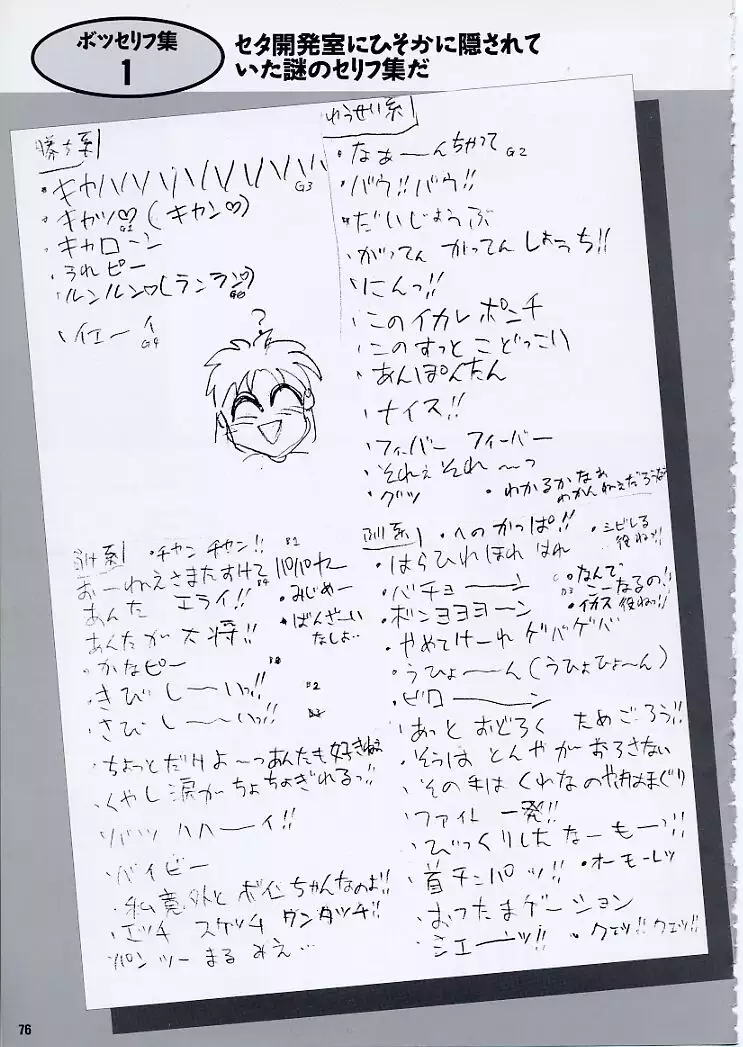 ボツセリフ集
1
セタ開発室にひそかに隠されて
いた謎のセリフ集だ
勝ち系
・キャハハハハハハハハハ
G3
・キャッ♡(キャン♡)
・キャローン
・うれピー
・ルンルン♡(ランラン♡)
・イエーイ
G4
?
ゆうせい系
・なぁーんちゃって G2
・バウ!!バウ!!
・だいじょうぶ
・がってん がってん しょうち!!
・にんっ!!
・このイカレ ポンチ
・このすっとこどっこい
・あんぽんたん
・ナイス!!
・フィーバー フィーバー
・それぇ それ〜っ
・グッ
・わかるかなぁ
わかんねぇだろうなぁ
負け系
・チャン チャン!!
おーねえさまたすけて
・みじめー
あんた エライ!!
・ばんざーい
なしよ…
あんたが大将!!
・かなピー
・きびしーいっ!!
・さびしーーいっ!!
・ちょっとだけよ〜っあんたも好きねぇ
・くやし涙がちょちょぎれるっ!!
・バイビー
・私意外とボインちゃんなのよ!!
・エッチ スケッチ ワンタッチ!!
・パンツーまるみえ…
・へのかっぱ!!
・シビレる
役ねっ!!
・はらひれほれはれ
・なんで
こーなるの!!
・バチョーーン
・イカス役ねっ!!
・ボンヨヨヨーン
・やめてけーれ ゲバゲバ
・うひょーーん(うひょひょ〜ん)
・ビローーーン
・あっとおどろく ためごろう!!
・そうは とんやがおろさない
・その手はくわなの焼はまぐり
・ファイト 一発!!
・びっくりしたなーもーっ!!
・首チンパッ!!
・オーモーレツ
・おったまゲーション
・シエーーッ!!
・クェッ!! クェッ!!
76